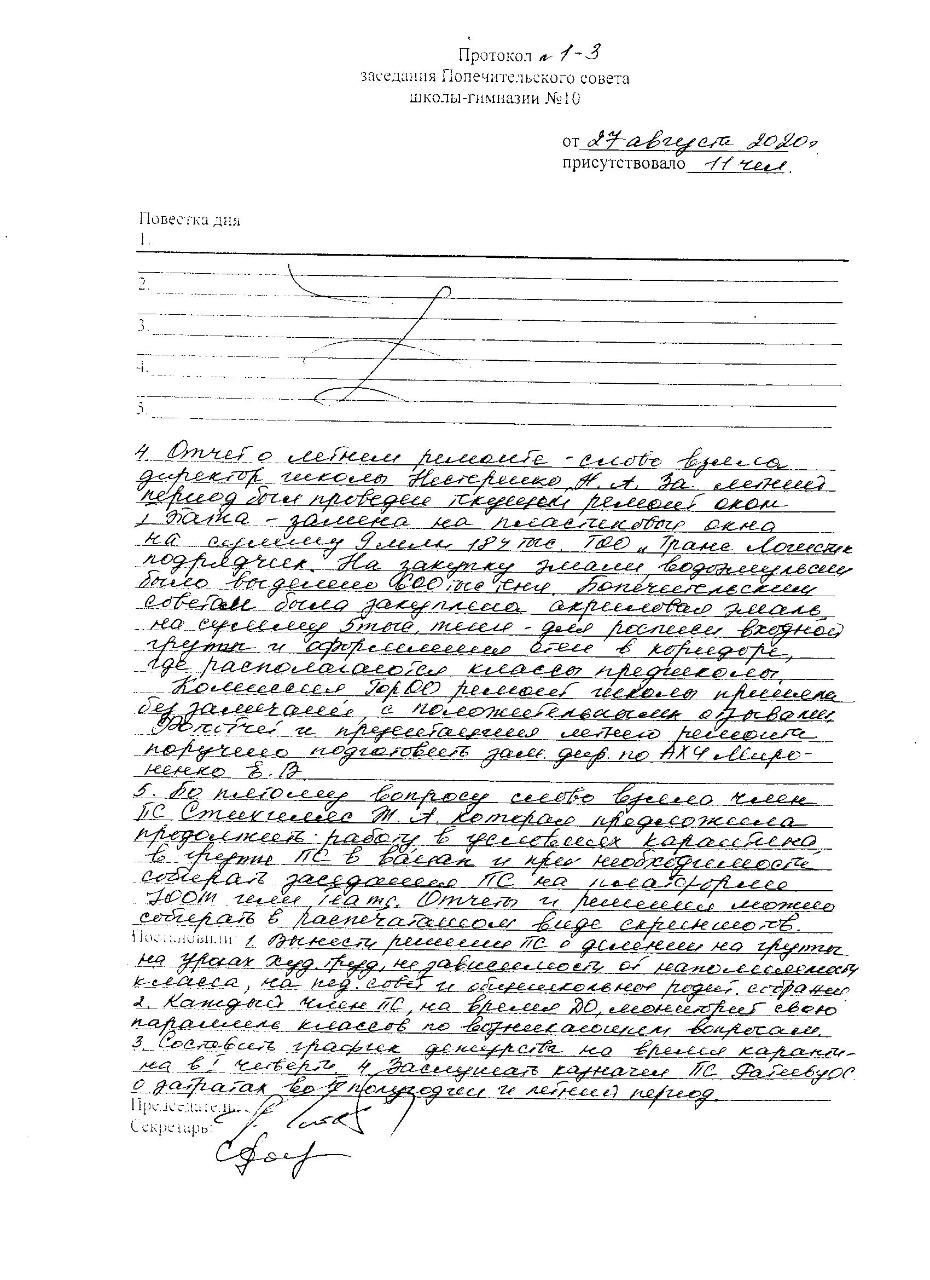 Протокол № 1-3
заседания Попечительского совета
школы-гимназии №10
от 27 августа 2020г
присутствовало 11 чел.
Повестка дня
1.
2.
3.
4.
5.
4 Отчет о летнем ремонте - слово взяла
директор школы Нестеренко Н. А. За летний
период был проведен текущий ремонт окон
1 этажа - замена на пластиковые окна
на сумму 9 млн 184 тыс. ТОО „Транс Логистик
подрядчик. На закупку эмали водоэмульсии
было выделено 600 тыс тенге. Попечительским
советом была закуплена акриловая эмаль
на сумму 5 тыс. тенге - для росписи входной
группы и оформления стен в коридоре,
где располагаются классы предшколы.
Комиссия ГорОО ремонт школы приняла
без замечаний, с положительными отзывами
Фотоотчет и презентацию летнего ремонта
поручено подготовить зам. дир. по АХЧ Миро-
ненко Е. В
5. По пятому вопросу слово взяла член
ПС А. которая предложила
продолжить работу в условиях карантина
в группе ПС в ватсап и при необходимости
собирать заседания ПС на платформе
ZOOM или Teams. Отчеты и решения можно
собирать в распечатанном виде скриншотов.
Постановили: 1. Вынести решение ПС о делении на группы
на уроках худ. труд, не зависимости от наполняемости
класса, на пед. совет и общешкольное родит. собрание
2. Каждый член ПС, на время ДО, мониторит свою
параллель классов по возникающим вопросам.
3 Составить график дежурства на время каранти-
на в 1 четверти. 4. Заслушать казначея ПС Фатееву ОС
о затратах во II полугодии и летний период.
Председатель:
Секретарь: